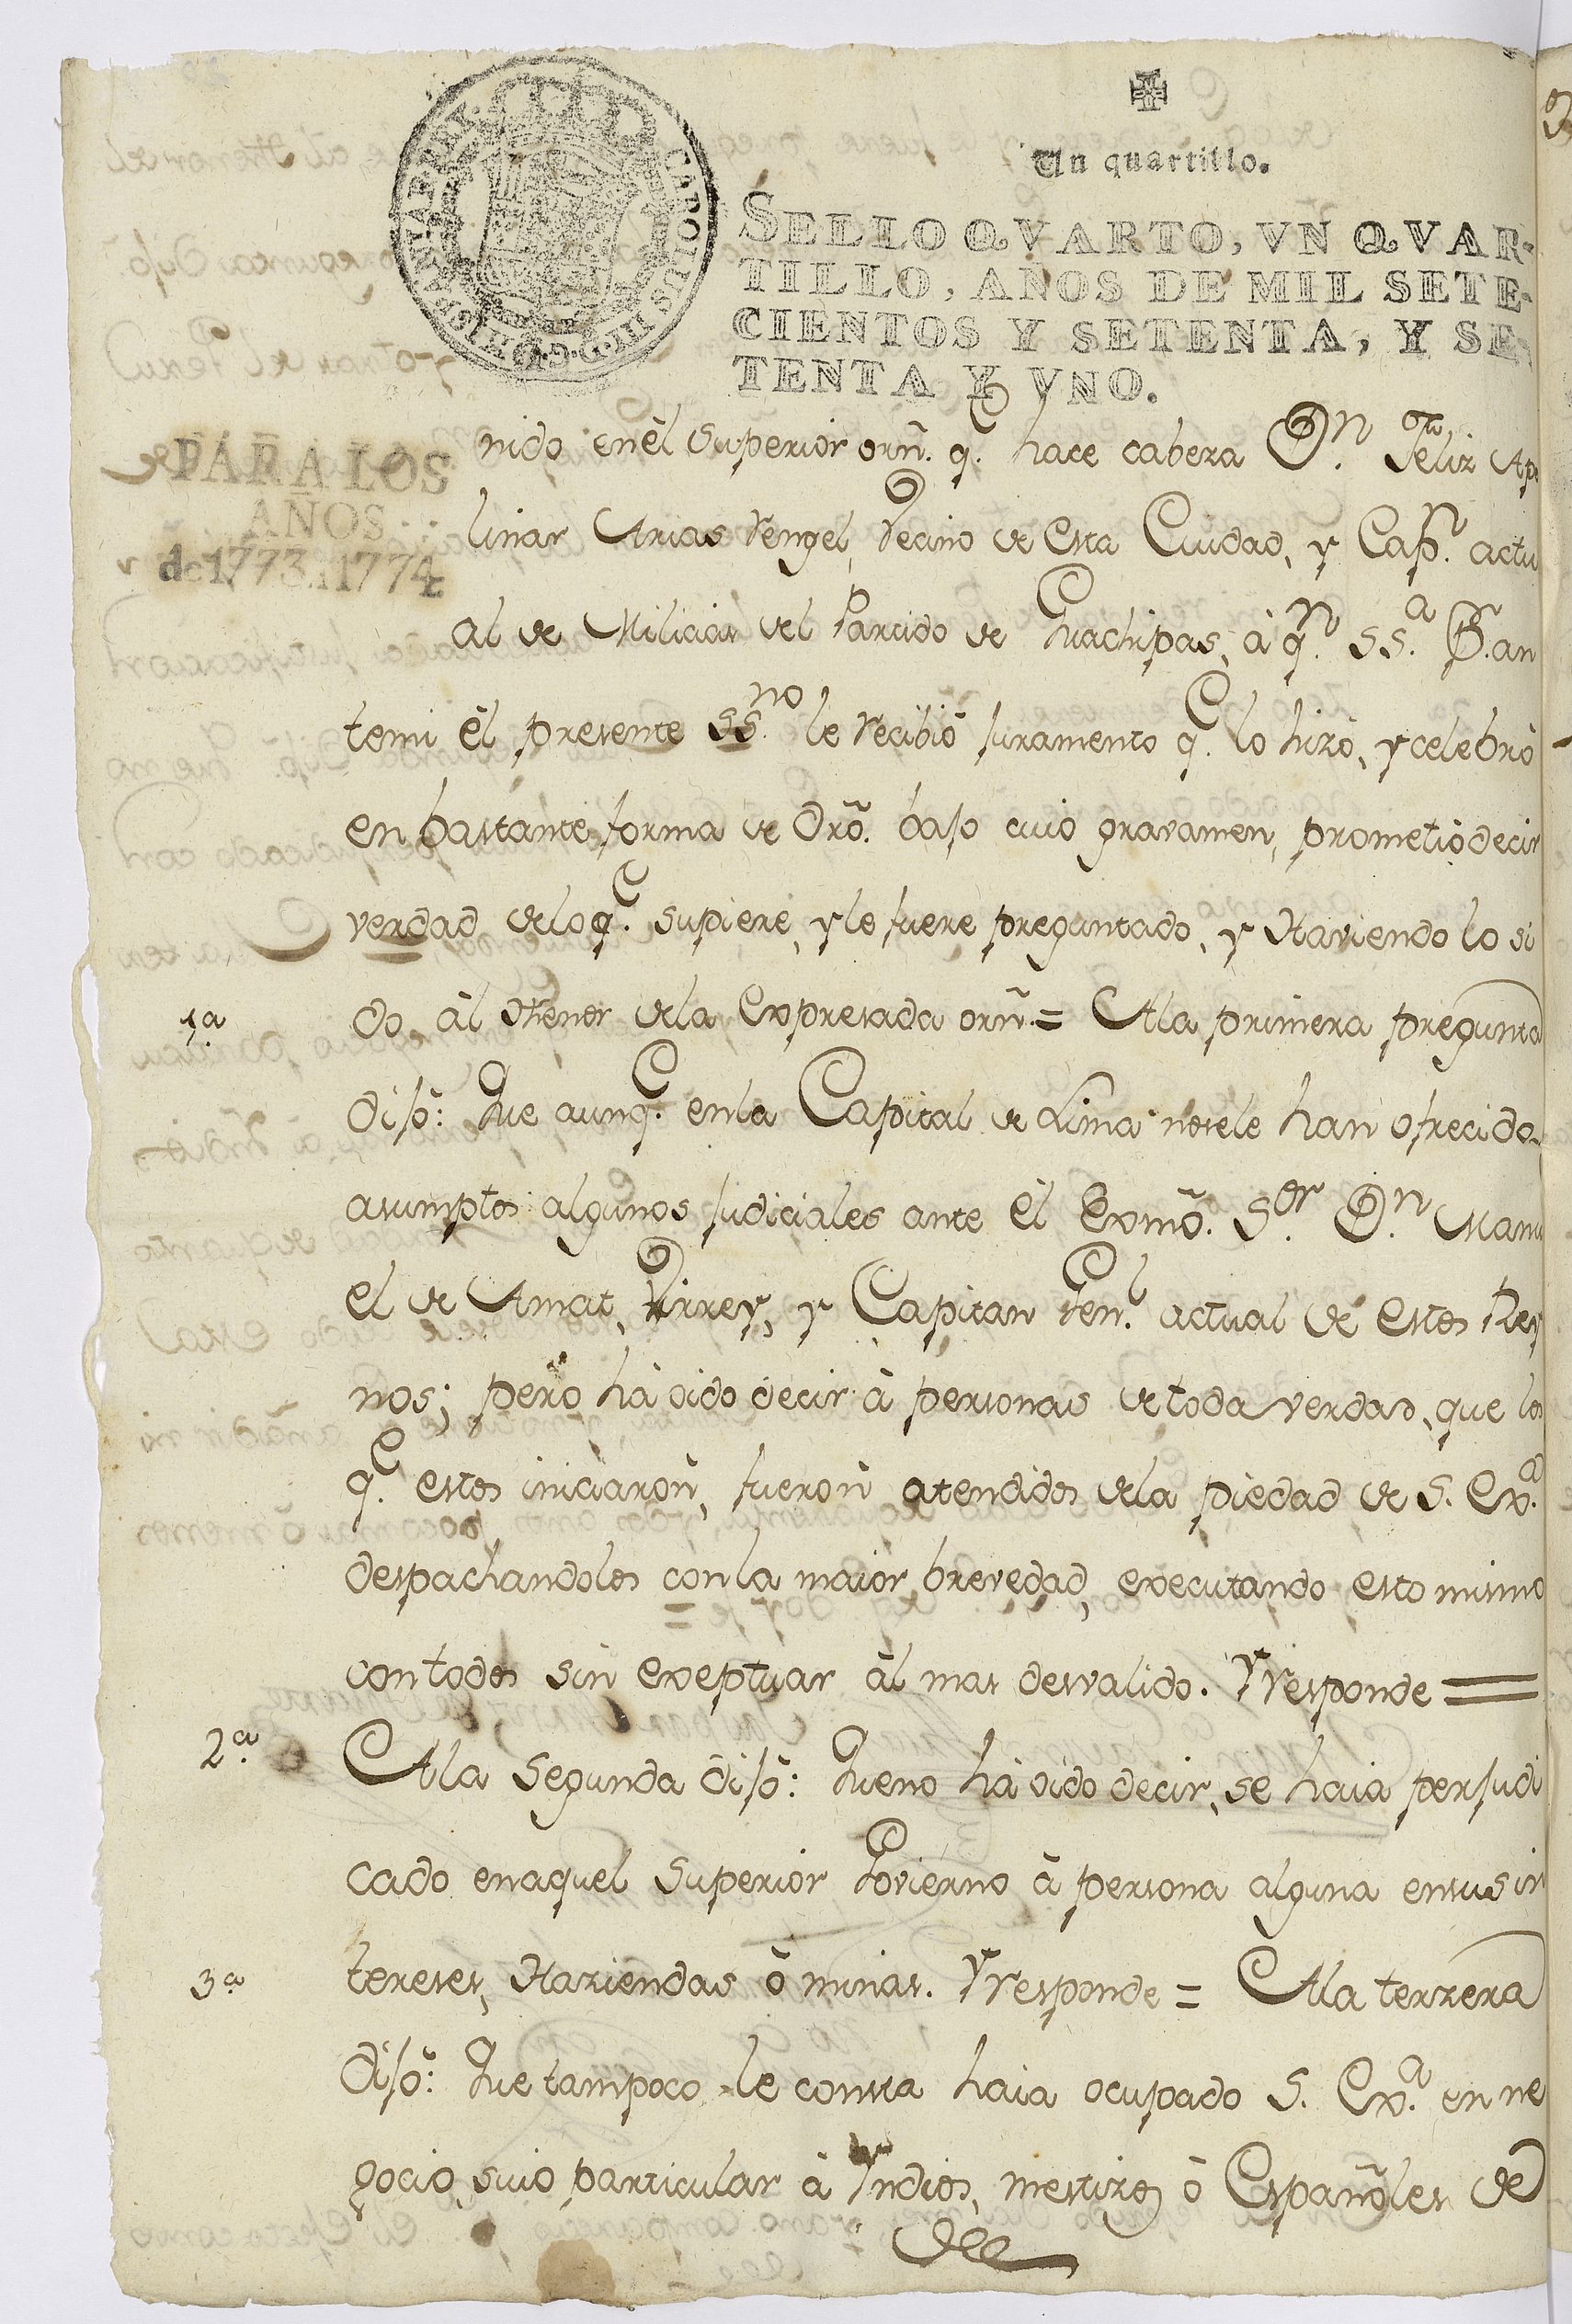 Un quartillo.
SELLO QVARTO, VN QVAR-
TILLO, AÑOS DE MIL SETE-
CIENTOS Y SETENTA, Y SE-
TENTA Y VNO.
PARA LOS
AÑOS
de 1773. i 1774
nido en èl Superior orñ. q.e hace cabeza D.n Feliz Apo
linar Arias Rengel, Vecino de esta Ciudad, y Cap.n actu
al de Milicias del Partido de Guachipas, à q.n S S.a P. an
temi èl presente SS.no le recibiò juramento q.e lo hizo, y celebrò
en bastante forma de Drõ. bajo cuio gravamen, prometiò decir
verdad de lo q.e supiere, y le fuere preguntado, y Haviendo lo si
1.a do, àl thenor de la Expresada orñ. = A la primera pregunta
dijò: Que aunq.e en la Capital de Lima no sele han ofrecido
asumptos algunos judiciales ante èl Exmõ. S.or D.n Manu
el de Amat, Virrey, y Capitan Gen.l actual de estos Rey
nos; pero hà oido decir à personas de toda verdad, que los
q.e estos iniciaron, fueron atendidos de la piedad de S. Ex.a
despachandolos con la maior brevedad, executando esto mismo
con todos sin exeptuar àl mas desvalido. Y responde =
2.a A la Segunda dijò: Que no hà oido decir, se haia perjudi
cado en aquel Superior Govierno à persona alguna en sus in
3.a tereses, Haziendas ò minas. Y responde = A la terzera
dijò: Que tampoco le consta haia ocupado S. Ex.a en ne
gocio suio particular à Yndios, mestizos ò Españoles de